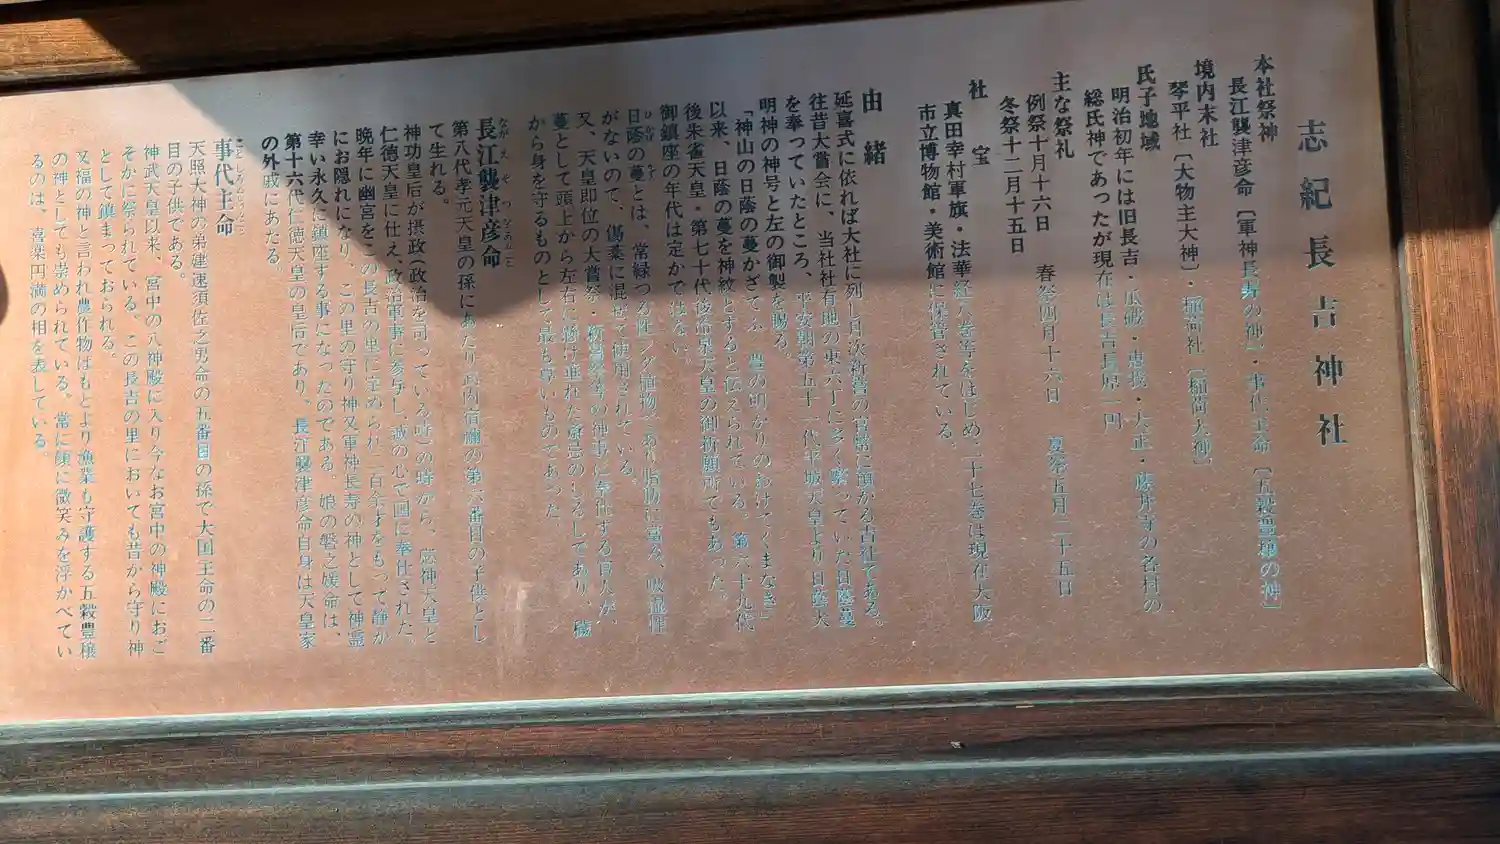 志紀長吉神社
本社祭神
長江襲津彦命〔軍神長寿の神〕・事代主命〔五穀豊穣の神〕
境内末社
琴平社〔大物主大神〕・稲荷社〔稲荷大神〕
氏子地域
明治初年には旧長吉・瓜破・恵我・大正・藤井寺の各村の
総氏神であったが現在は長吉長原一円
主な祭礼
例祭十月十六日 春祭四月十六日 夏祭五月二十五日
冬祭十二月十五日
社宝
真田幸村軍旗・法華経八巻等をはじめ二十七巻は現在大阪
市立博物館・美術館に保管されている。
由緒
延喜式に依れば大社に列し月次新嘗の官幣に預かる古社である。
往昔大賞会に、当社社有地の東六丁に多く繁っていた日蔭蔓
を奉っていたところ、平安朝第五十一代平城天皇より日蔭大
明神の神号と左の御製を賜る。
「神山の日蔭の蔓かざすてふ 豊の明かりのわけてくまなき」
以来、日蔭の蔓を神紋とすると伝えられている。第六十九代
後朱雀天皇・第七十代後冷泉天皇の御祈願所でもあった。
御鎮座の年代は定かではない。
日蔭の蔓とは、常緑つる性シダ植物であり脂肪に富み、吸湿性
がないので、傷薬に混ぜて使用されている。
又、天皇即位の大賞祭・新嘗祭等の神事に奉仕する官人が、
蔓として頭上から左右に懸け垂れた斎忌のしるしであり、穢
から身を守るものとして最も尊いものであった。
長江襲津彦命
第八代孝元天皇の孫にあたり武内宿禰の第六番目の子供とし
て生れる。
神功皇后が摂政(政治を司っている時)の時から、応神天皇と
仁徳天皇に仕え、政治軍事に参与し、誠の心で国に奉仕された。
晩年に幽宮をこの長吉の里に定められ三百余才をもって静か
にお隠れになり、この里の守り神又軍神長寿の神として神霊
幸い永久に鎮座する事になったのである。娘の磐之媛命は、
第十六代仁徳天皇の皇后であり、長江襲津彦命自身は天皇家
の外戚にあたる。
事代主命
天照大神の弟建速須佐之男命の五番目の孫で大国主命の二番
目の子供である。
神武天皇以来、宮中の八神殿に入り今なお宮中の神殿におご
そかに祭られている、この長吉の里においても昔から守り神
として鎮まっておられる。
又福の神と言われ農作物はもとより漁業も守護する五穀豊穣
の神としても崇められている。常に顔に微笑みを浮かべてい
るのは、喜楽円満の相を表している。